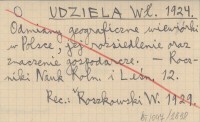 O UDZIELA Wł. 1924.
Odmiany geograficzne wiewiórki
w Polsce, jej rozsiedlenie oraz
znaczenie gospodarcze. — Rocz-
niki Nauk Roln. i Leśn. 12.
Rec.: Roszkowski W. 1929.